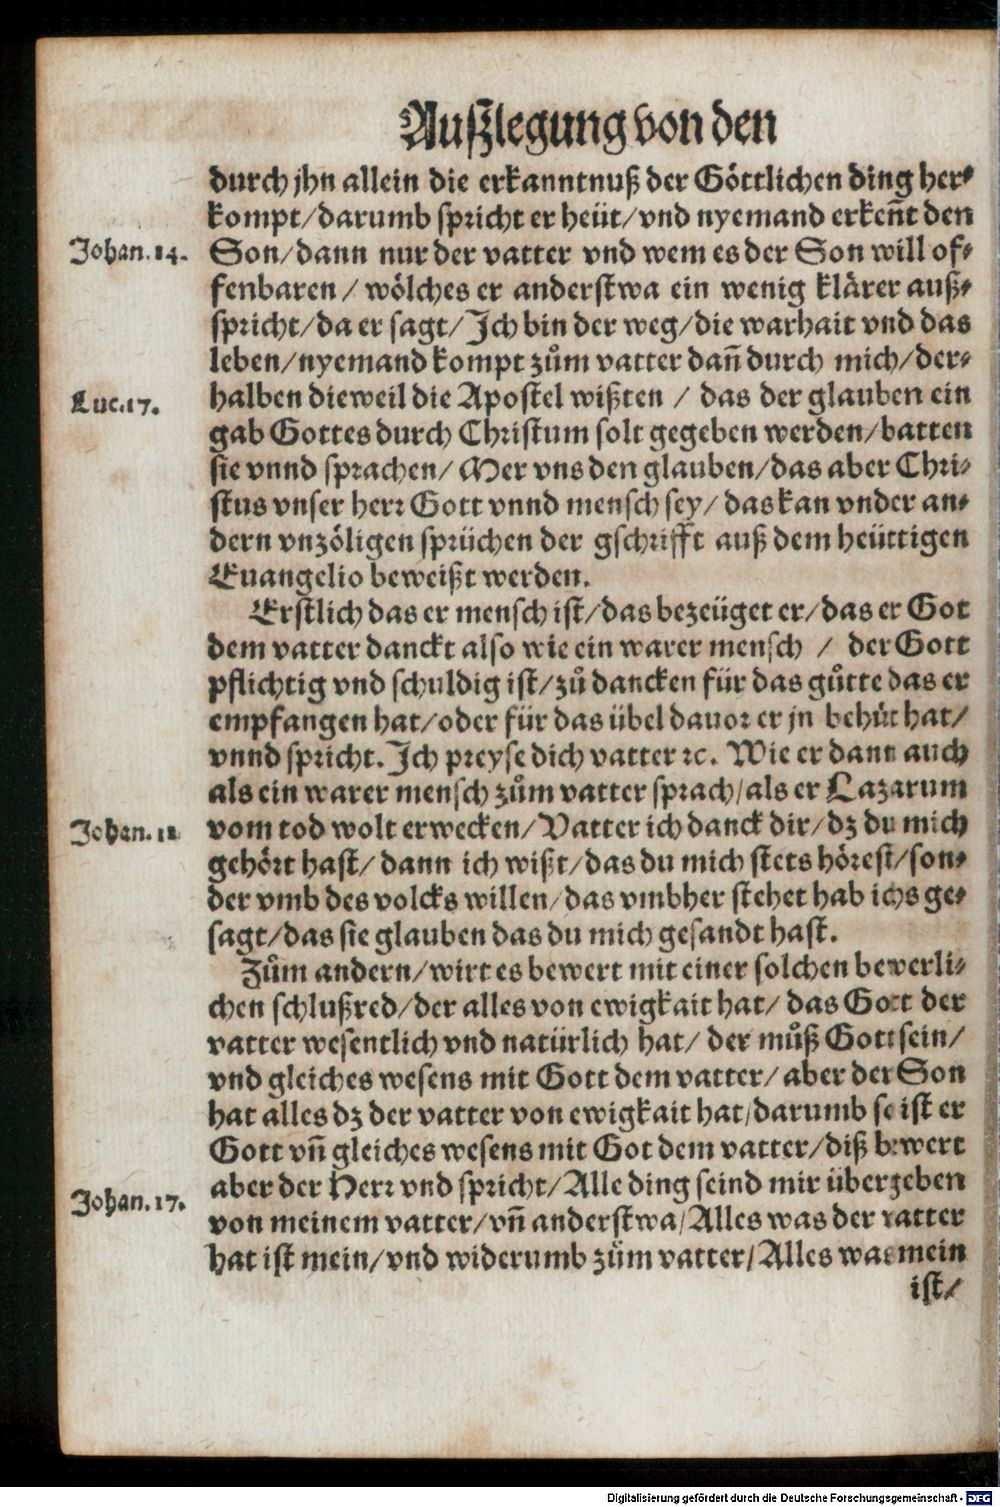 Außlegung von den
durch jhn allein die erkanntnuß der Göttlichen ding her⸗
kompt/darumb spricht er heüt/vnd nyemand erkeñt den
Johan.14.
Son/dann nur der vatter vnd wem es der Son will of⸗
fenbaren / wölches er anderstwa ein wenig klärer auß⸗
spricht/da er sagt/Ich bin der weg/die warhait vnd das
leben/nyemand kompt zům vatter dañ durch mich/der⸗
Luc.17.
halben dieweil die Apostel wißten / das der glauben ein
gab Gottes durch Christum solt gegeben werden/batten
sie vnnd sprachen/Mer vns den glauben/das aber Chri⸗
stus vnser herr Gott vnnd mensch sey/das kan vnder an⸗
dern vnzöligen sprüchen der gschrifft auß dem heüttigen
Euangelio beweißt werden.
Erstlich das er mensch ist/das bezeüget er/das er Got
dem vatter danckt also wie ein warer mensch / der Gott
pflichtig vnd schuldig ist/zů dancken für das gůtte das er
empfangen hat/oder für das übel dauor er jn behüt hat/
vnnd spricht. Ich preyse dich vatter ꝛc. Wie er dann auch
als ein warer mensch zům vatter sprach/als er Lazarum
Johan.11
vom tod wolt erwecken/Vatter ich danck dir/dz du mich
gehört hast/dann ich wißt/das du mich stets hörest/son⸗
der vmb des volcks willen/das vmbher stehet hab ichs ge⸗
sagt/das sie glauben das du mich gesandt hast.
Zům andern/wirt es bewert mit einer solchen bewerli⸗
chen schlußred/der alles von ewigkait hat/das Gott der
vatter wesentlich vnd natürlich hat/der můß Gott sein/
vnd gleiches wesens mit Gott dem vatter/aber der Son
hat alles dz der vatter von ewigkait hat/darumb so ist er
Gott vñ gleiches wesens mit Got dem vatter/diß bewert
Johan.17.
aber der Herr vnd spricht/Alle ding seind mir übergeben
von meinem vatter/vñ anderstwa/Alles was der vatter
hat ist mein/vnd widerumb zům vatter/Alles was mein
ist/
Digitalisierung gefördert durch die Deutsche Forschungsgemeinschaft - DFG